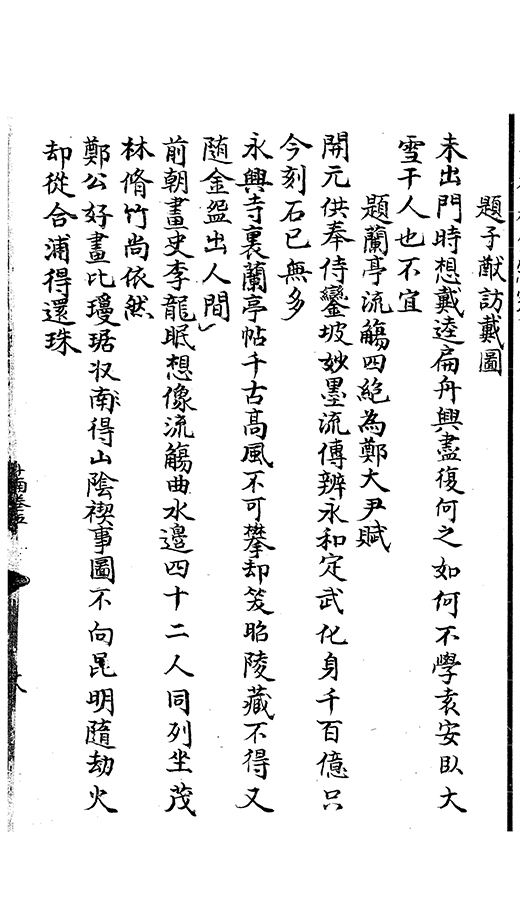 題子猷訪戴圖
未出門時想戴逵扁舟興盡復何之如何不學袁安臥大
雪干人也不宜
題蘭亭流觴四絕為鄭大尹賦
開元供奉侍鑾坡妙墨流傳辨永和定武化身千百億只
今刻石已無多
永興寺裏蘭亭帖千古高風不可攀却笑昭陵藏不得又
隨金盌出人間
前朝畫史李龍眠想像流觴曲水邊四十二人同列坐茂
林脩竹尚依然
鄭公好畫比瓊琚収南得山陰禊事圖不向昆明隨劫火
却從合浦得還珠